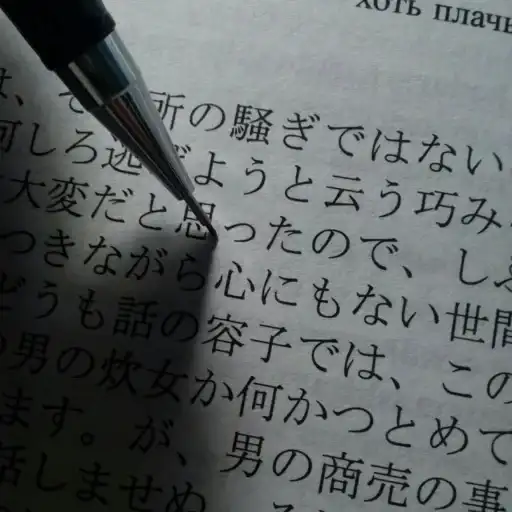 хоть плачь
所の騒ぎではない
何しろ逃げようと云う巧み
大変だと思ったので、し
つきながら心にもない世間
どうも話の容子では、この
男の炊女か何かつとめて
ます。が、男の商売の事
話しませぬ